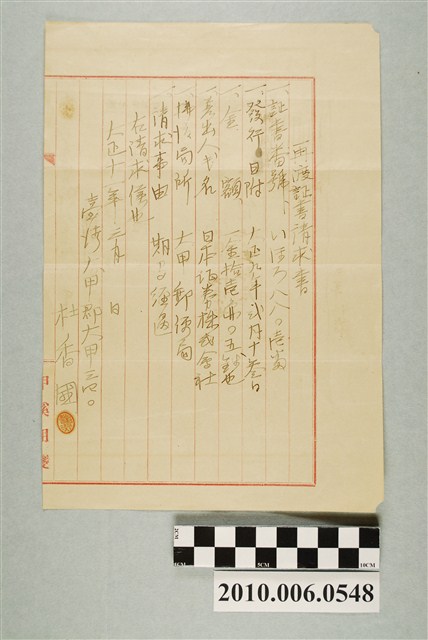 再渡証書請求書
一、証書番號、いほろ八八〇壱番
一、發行日附 大正九年弐月十叁日
一、金額 一金拾壱円〇五銭也
一、差出人氏名 日本証券株式會社
一、拂渡局所 大甲郵便局
一、請求事由 期間経過
右請求候也
大正十一年三月 日
臺灣大甲郡大甲三〇〇
杜香國
2CM
0CM
5CM
10CM
2010.006.0548